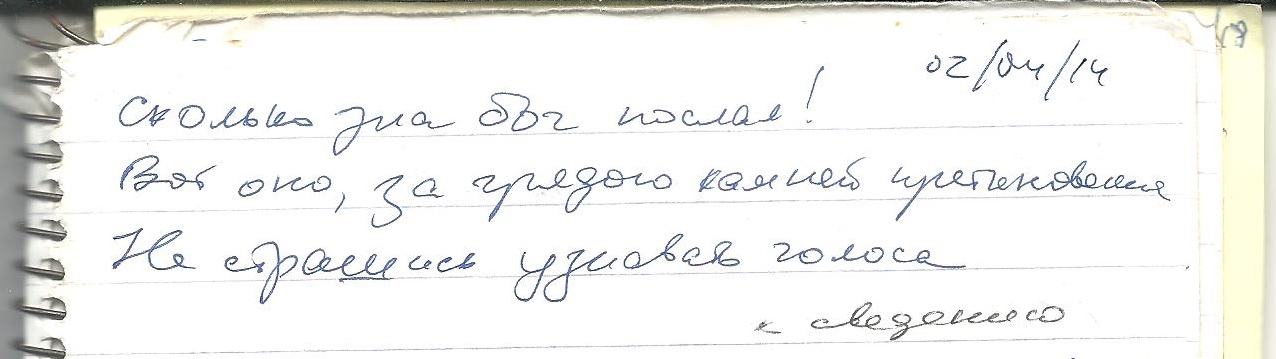 02/04/14
Сколько зла Бог послал!
Вот оно, за грядою камней претыкновения
Не страшись узнавать голоса
к сведению